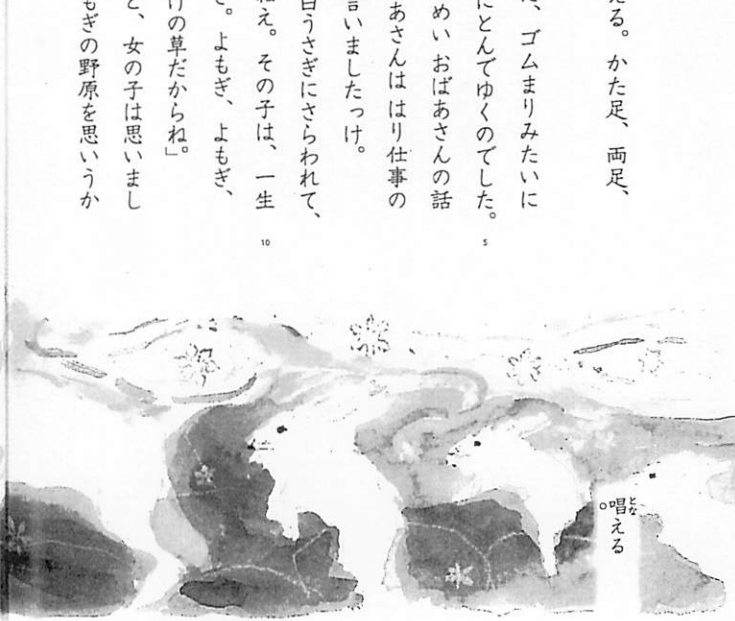 える。かた足、両足、
、ゴムまりみたいに
にとんでゆくのでした。
5
めい おばあさんの話
あさんは はり仕事の
言いましたっけ。
白うさぎにさらわれて、
ねえ。その子は、一生
10
。よもぎ、よもぎ、
けの草だからね」。
と、女の子は思いまし
もぎの野原を思いうか
唱える
とな